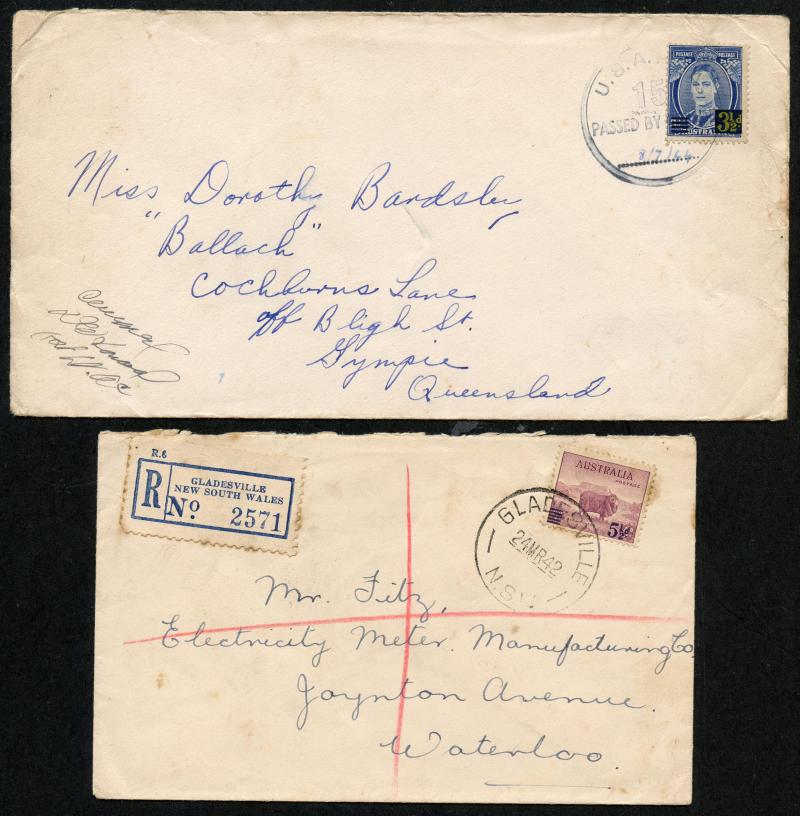 U.S.A.
15
PASSED BY
8/7/44
POSTAGE POSTAGE
3½d
AUSTRALIA
Miss Dorothy Bardsley
"Ballach"
Cochburns Lane
off Bligh St.
Gympie
Queensland
R.6
R
GLADESVILLE
NEW SOUTH WALES
No 2571
AUSTRALIA
POSTAGE
5½d
GLADESVILLE
24MR42
N.S.W.
Mr. Fitz,
Electricity Meter. Manufacturing Co
Joynton Avenue.
Waterloo.